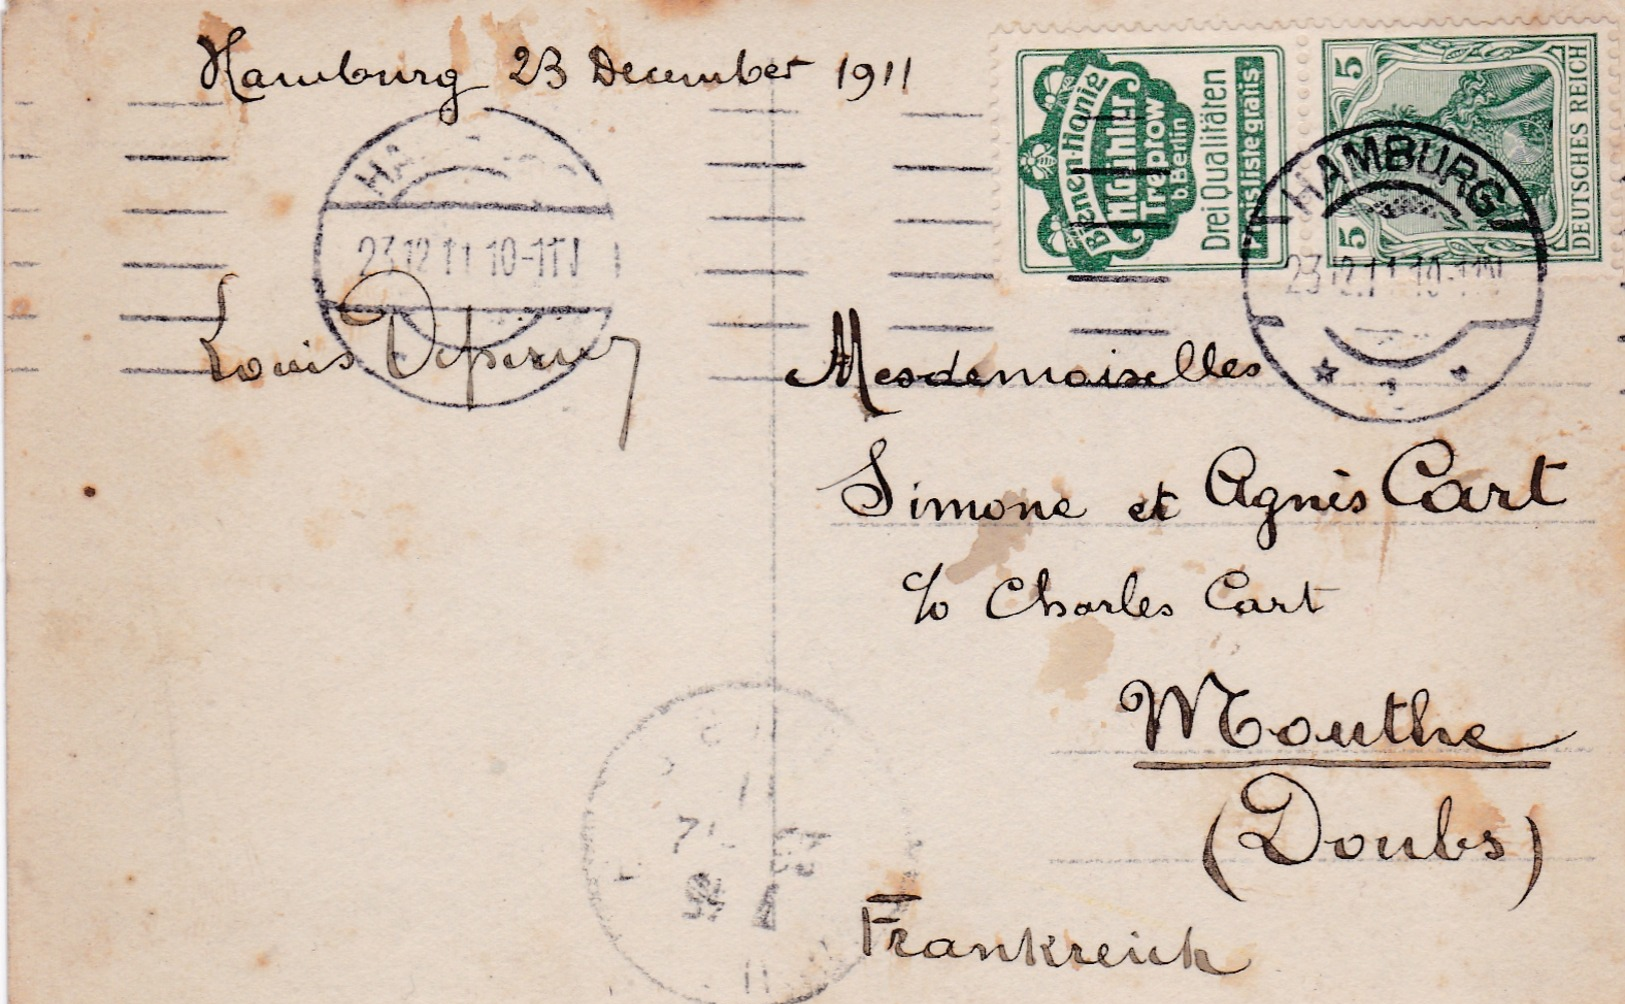 Hamburg 23 December 1911
Bienen-Honig
H. Gühler
Treptow
b. Berlin
Drei Qualitäten
Preisliste gratis
5 5
DEUTSCHES REICH
HAMBURG
23.12.11.10-11V
1
HA
23.12.11.10-11V
Louis
Mesdemoiselles
Simone et Agnès Cart
c/o Charles Cart
Mouthe
(Doubs)
Frankreich